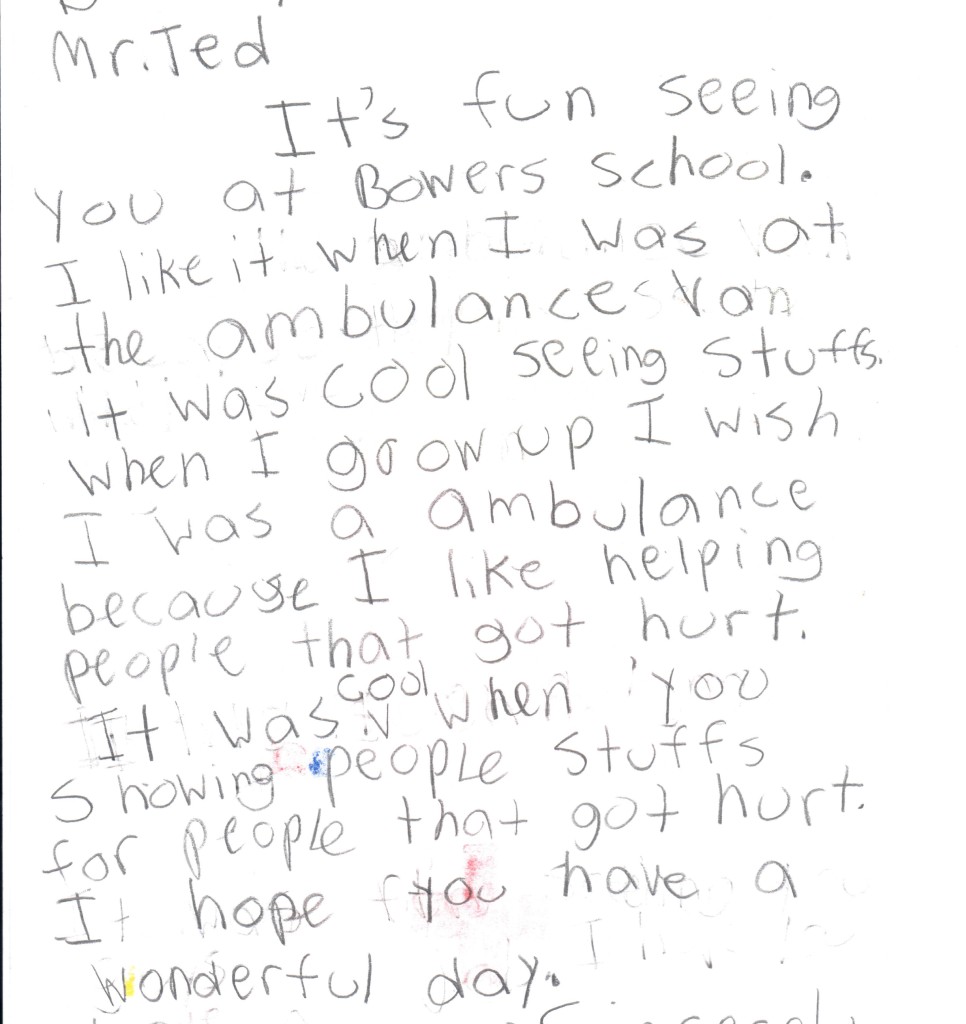 Mr. Ted
It's fun seeing
you at Bowers school.
I like it when I was at
the ambulance van
it was cool seeing stuffs.
when I grow up I wish
I was a ambulance
because I like helping
people that got hurt.
It was cool when you
showing people stuffs
for people that got hurt.
I hope you have a
wonderful day.